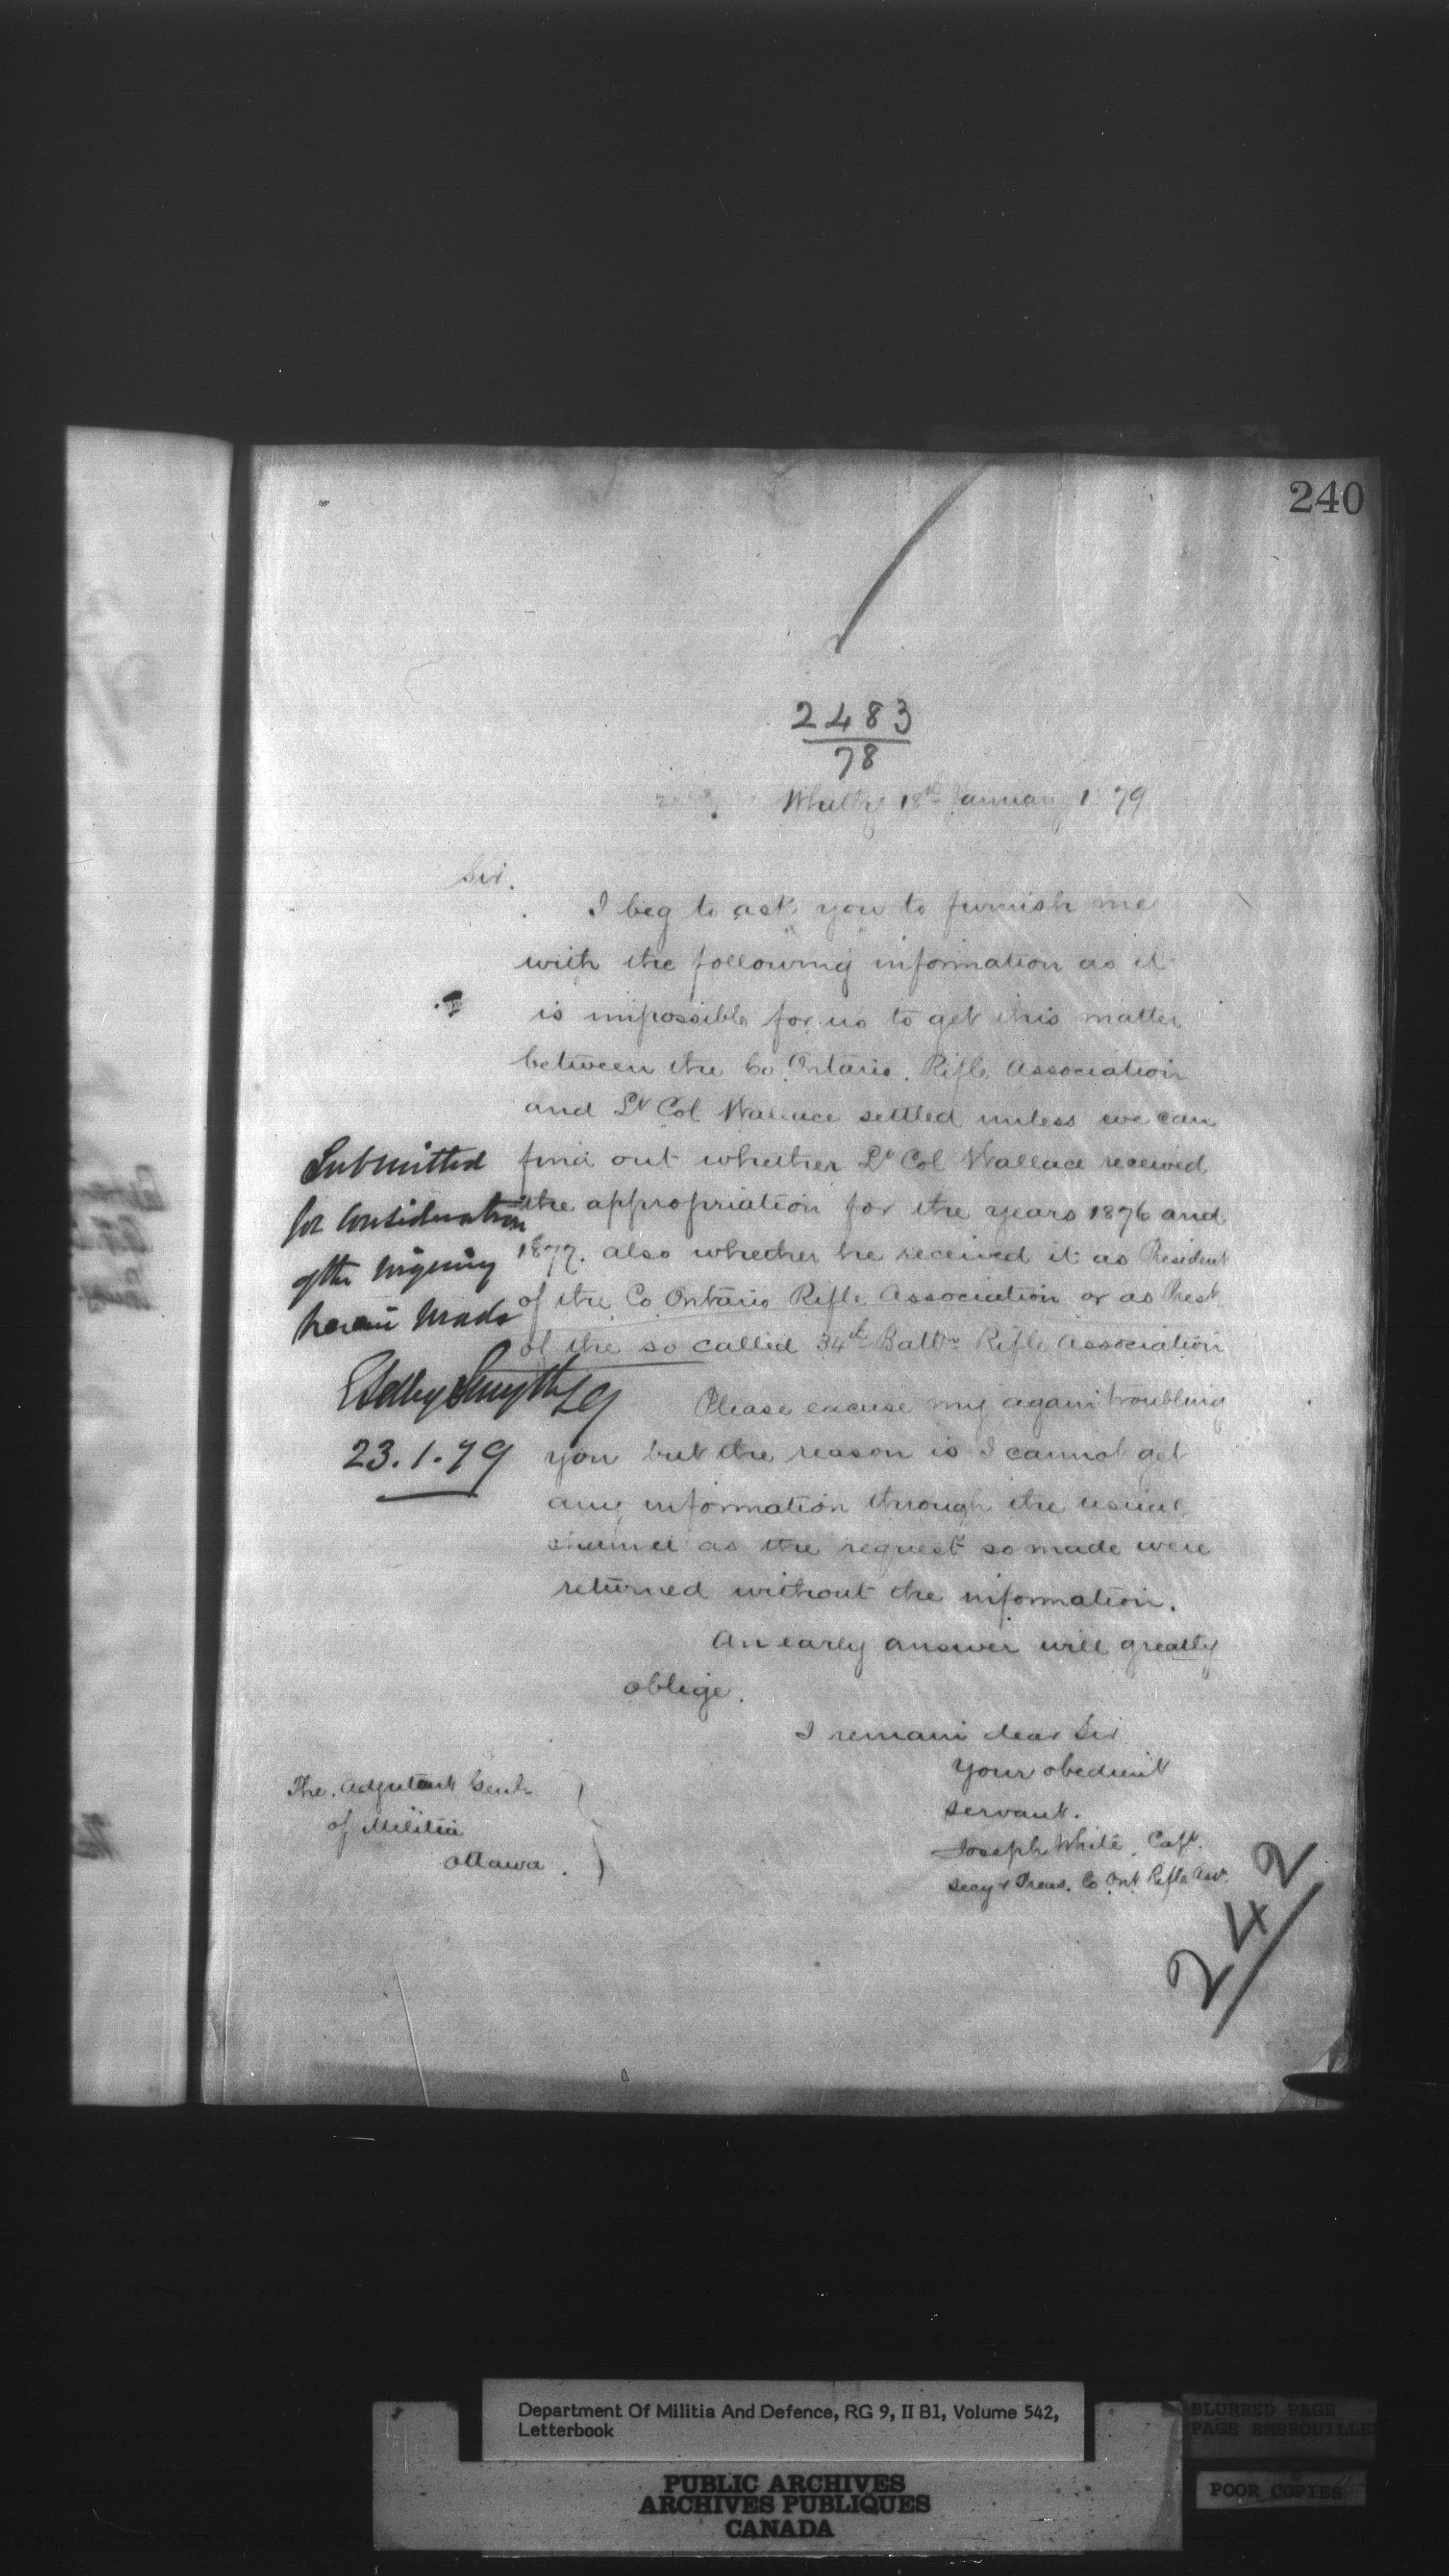 240
2483
78
Whitby 18th January 1879
Sir.
I beg to ask you to furnish me
with the following information as it
is impossible for us to get this matter
between the Co. Ontario. Rifle Association
and Lt Col Wallace settled unless we can
find out whether Lt Col Wallace received
the appropriation for the years 1876 and
1877. also whether he received it as President
of the Co Ontario Rifle Association or as Prest
of the so called 34th Battn Rifle Association
Please excuse my again troubling
you but the reason is I cannot get
any information through the usual
channel as the request so made were
returned without the information.
An early answer will greatly
oblige.
I remain dear Sir
Your obedient
servant.
Joseph White. Capt.
Secy & Treas. Co. Ont Rifle Assn.
The Adjutant Genl.
of Militia
Ottawa.
Submitted
for consideration
of the inquiry
herein made
E Selby Smyth LG
23.1.79
242
Department Of Militia And Defence, RG 9, II B1, Volume 542,
Letterbook
PUBLIC ARCHIVES
ARCHIVES PUBLIQUES
CANADA
BLURRED PAGE
PAGE EMBROUILLE
POOR COPIES